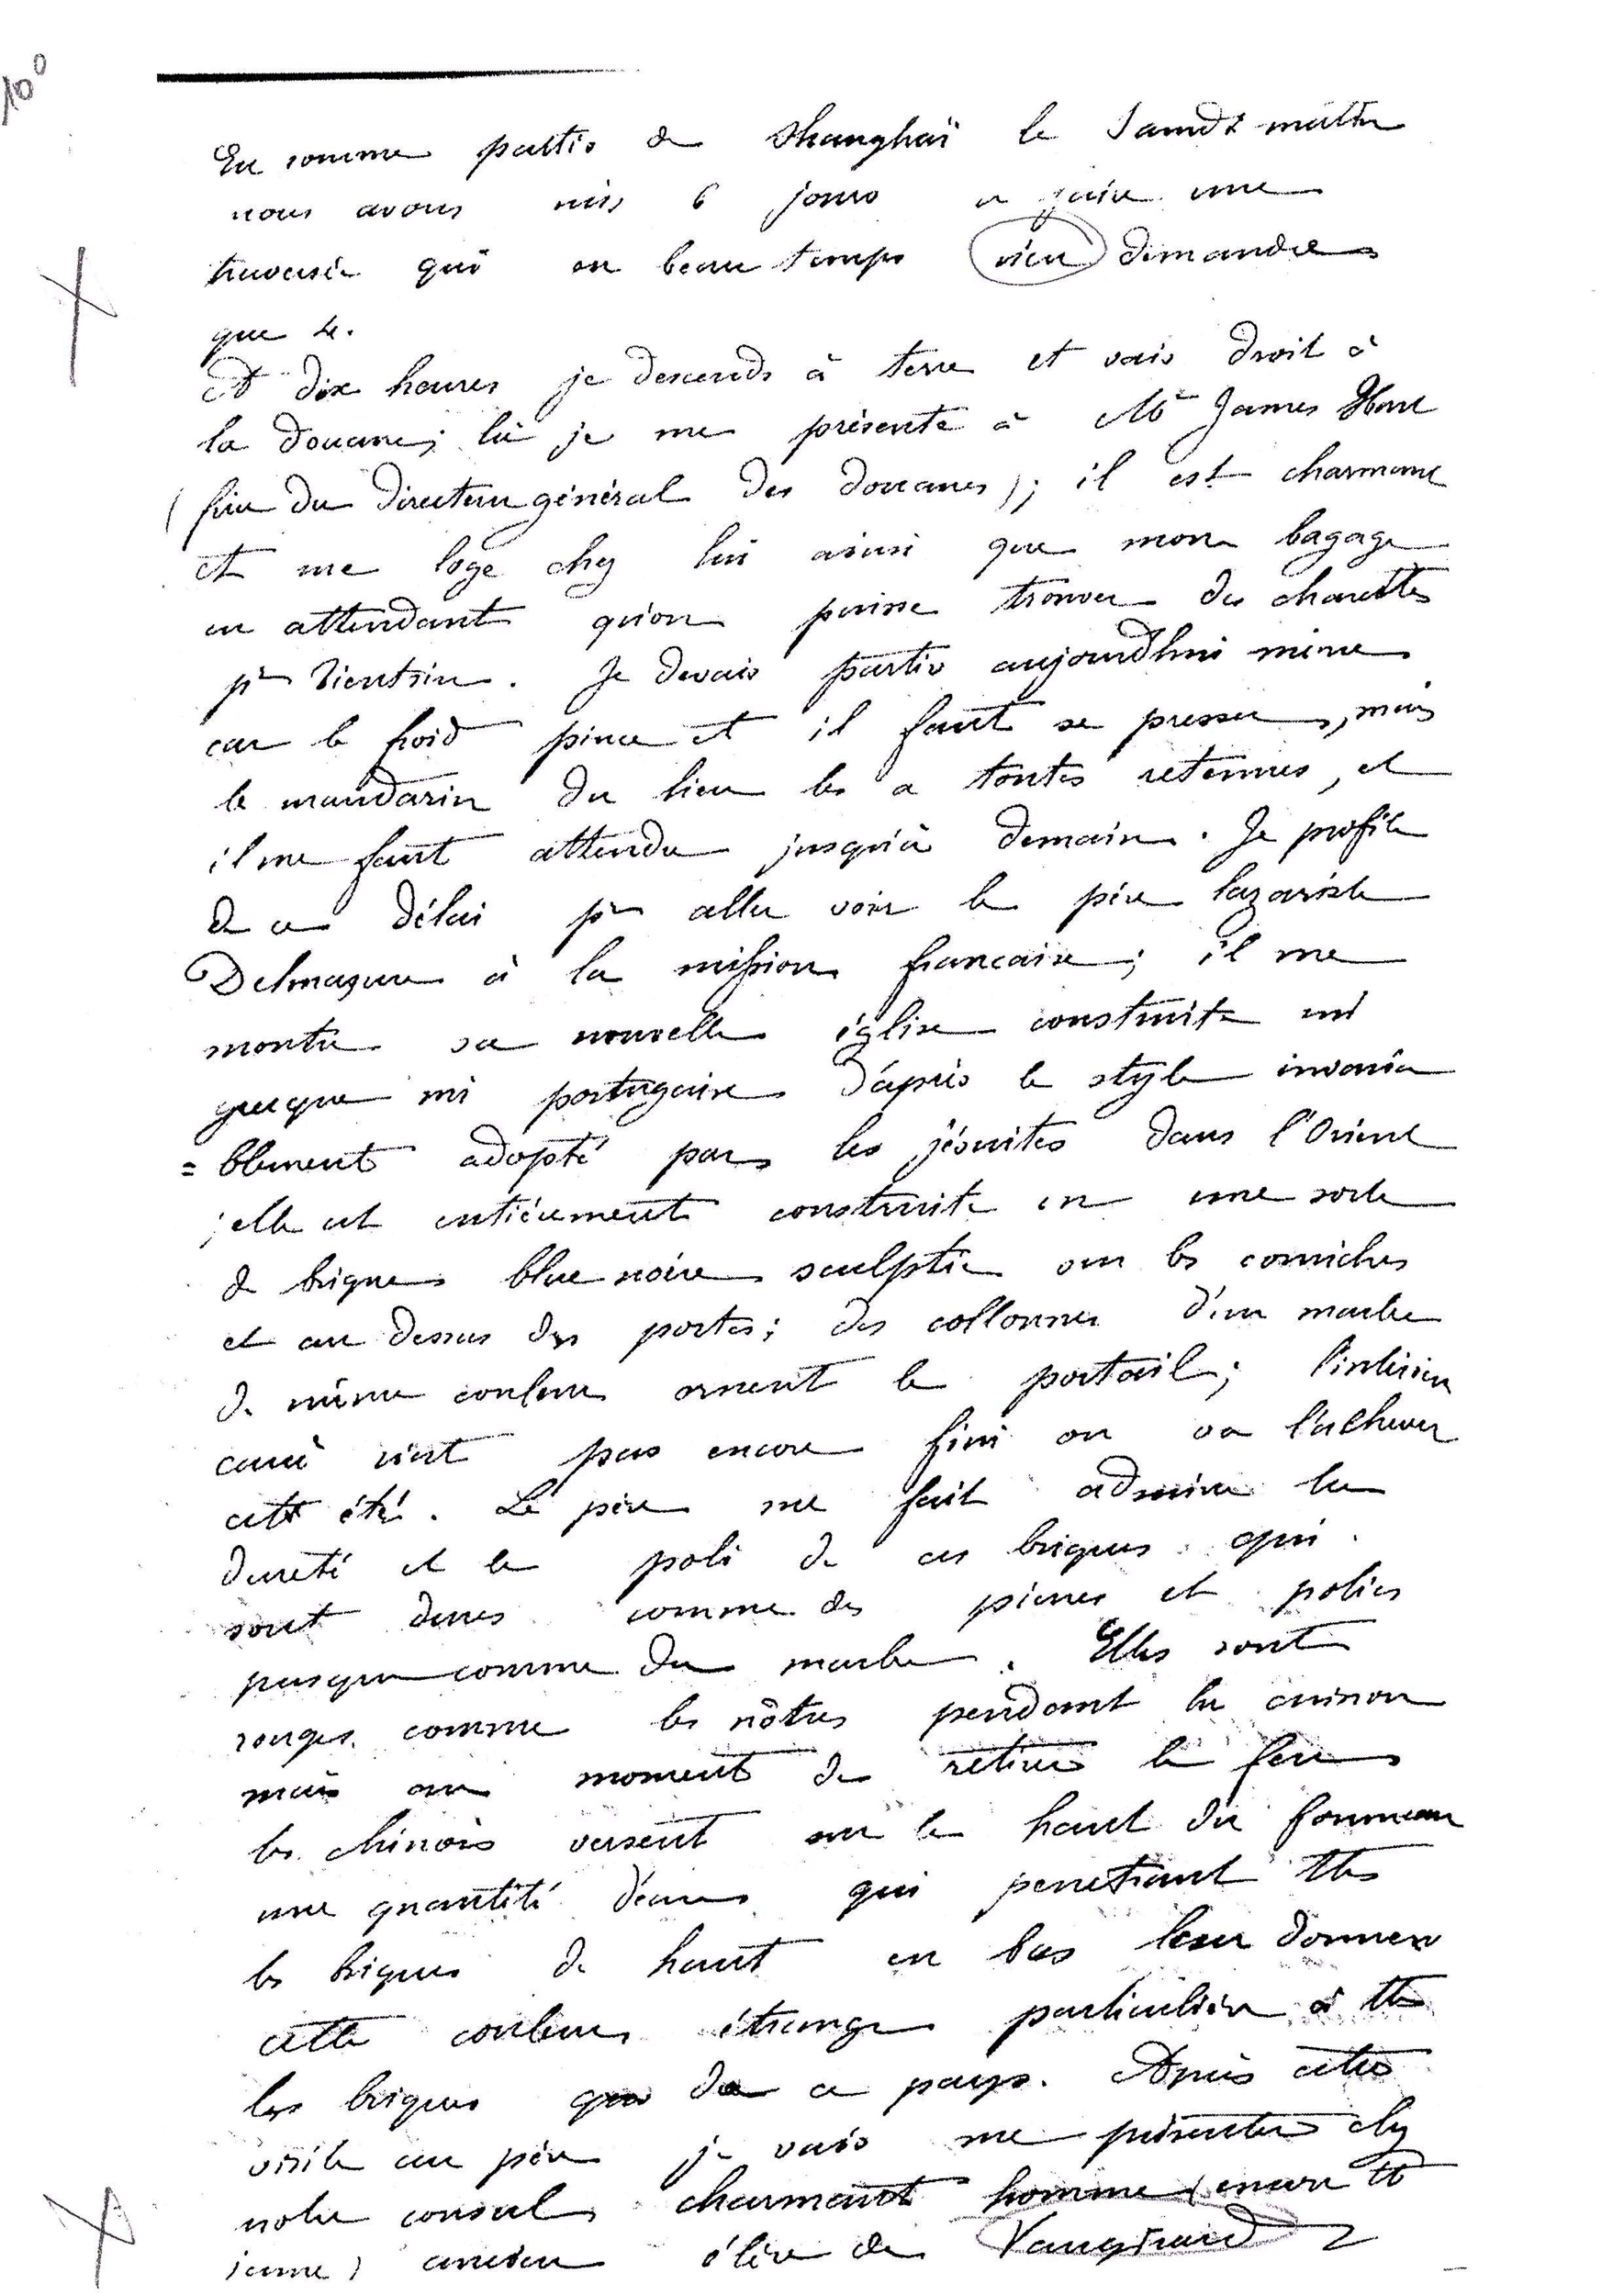 100
En somme partis de Shanghaï le Samdi matin
nous avons mis 6 jours a faire une
traversée qui en beau temps n'en demande
que 4.
A dix heures je descends à terre et vais droit à
la douane; là je me présente à Mr James Hart
(frère du directeur général des douanes); il est charmant
et me loge chez lui ainsi que mon bagage
en attendant qu'on puisse trouver des charettes
pr Tientsin. Je devais partir aujourd'hui même
car le froid pince et il faut se presser, mais
le mandarin du lieu les a toutes retenues, et
il me faut attendre jusqu'à demain. Je profite
de ce délai pr aller voir le père lazariste
Delmasure à la mission francaise; il me
montre sa nouvelle église construite mi
grecque mi portugaise d'après le style invaria
=blement adopté par les jésuites dans l'Orient
; elle est entièrement construite en une sorte
de brique bleue noire sculptée sur les corniches
et au dessus des portes; des collonnes d'un marbre
de même couleur ornent le portail; l'intérieur
carré n'est pas encore fini on va l'achever
cet été. Le père me fait admirer la
dureté et le poli de ces briques qui
sont dures comme des pierres et polies
presque comme du marbre. Elles sont
rouges comme les nôtres pendant la cuisson
mais au moment de retirer le feu
les chinois versent sur le haut du fourneau
une quantité d'eau qui penetrant ttes
les briques de haut en bas leur donnent
cette couleur étrange particulière à tte
les briques de ce pays. Après cette
visite au père je vais me présenter chez
notre consul charmant homme (encore tt
jeune) ancien élève de Vaugirard